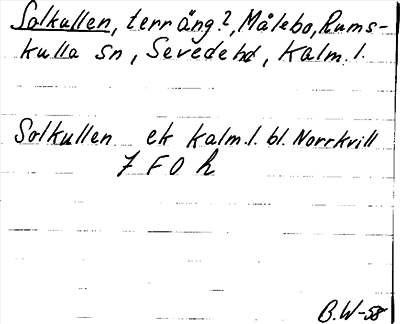 Solkullen, terräng?, Målebo, Rums-
kulla sn, Sevede hd, Kalm. l.
Solkullen ek Kalm. l. bl. Norrkvill
7 F 0 h
B.W-58